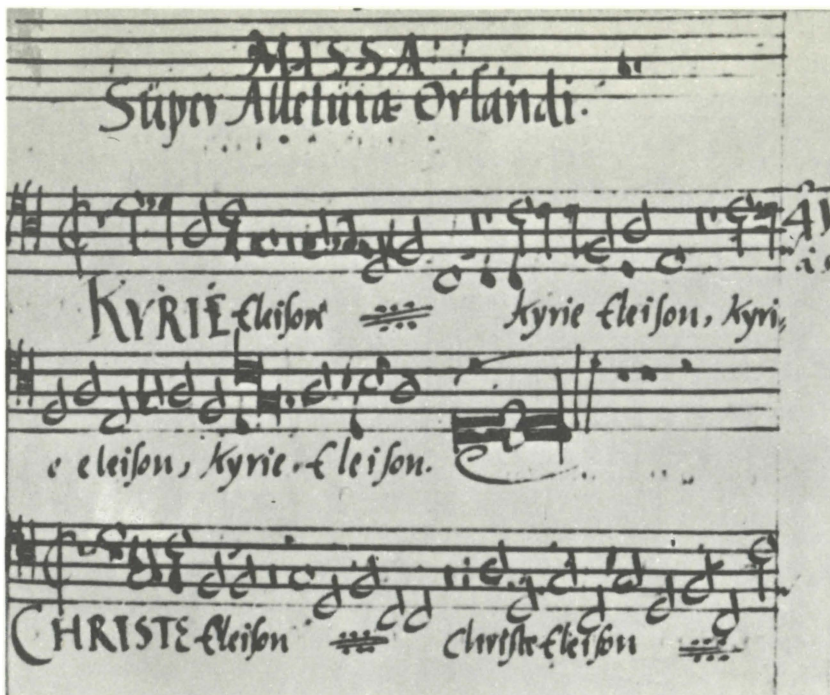 MISSA
Super Alleluia Orlandi.
KYRIE Eleison Kyrie Eleison, Kyri,
e eleison, Kyrie. Eleison.
CHRISTE Eleison Christe Eleison